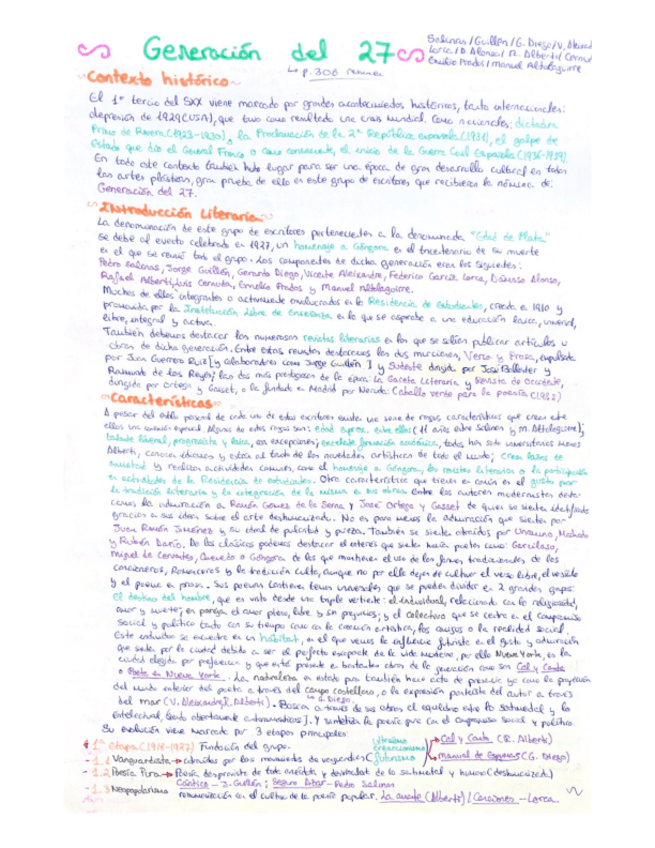 Generación del 27
Salinas / Guillén / G. Diego / V. Aleixand
Lorca / D. Alonso / R. Alberti / Cernud
Emilio Prados / Manuel Altolaguirre
p. 306
Contexto histórico
El 1er tercio del SXX viene marcado por grandes acontecimientos históricos, tanto internacionales:
depresión de 1929 (USA), que tuvo como resultado una crisis mundial. Como nacionales: dictadura
Primo de Rivera (1923-1930), la Proclamación de la 2ª República española (1931), el golpe de
Estado que dio el General Franco y como consecuencia, el inicio de la Guerra Civil Española (1936-1939).
En todo este contexto también hubo lugar para ser una época de gran desarrollo cultural en todas
las artes plásticas, gran prueba de ello es este grupo de escritores que recibieron la nómina de:
Generación del 27.
Introducción Literaria
La denominación de este grupo de escritores pertenecientes a la denominada "Edad de Plata"
se debe al evento celebrado en 1927, un homenaje a Góngora en el tricentenario de su muerte
en el que se reunió todo el grupo. Los componentes de dicha generación eran los siguientes:
Pedro Salinas, Jorge Guillén, Gerardo Diego, Vicente Aleixandre, Federico García Lorca, Dámaso Alonso,
Rafael Alberti, Luis Cernuda, Emilio Prados y Manuel Altolaguirre.
Muchos de ellos integrantes o activamente involucrados en la Residencia de Estudiantes, creada en 1910 y
promovida por la Institución Libre de Enseñanza en la que se aspiraba a una educación laica, universal,
libre, integral y activa.
También debemos destacar las numerosas revistas literarias en las que se solían publicar artículos u
obras de dicha generación. Entre estas revistas destacamos las dos murcianas, Verso y Prosa,
por Juan Guerrero Ruiz [y colaboradores como Jorge Guillén] y Sudeste dirigida por José Ballester y
Raimundo de los Reyes; las dos más prestigiosas de la época: La Gaceta Literaria y Revista de Occidente,
dirigida por Ortega y Gasset, o la fundada en Madrid por Neruda: Caballo verde para la poesía
Características
A pesar del estilo personal de cada uno de estos escritores existen una serie de rasgos característicos que crean entre
ellos una especial. Algunos de estos rasgos son: edad aprox. entre ellos (11 años entre Salinas y M. Altolaguirre);
talante liberal, progresista y laico, con excepciones; excelente formación académica, todos han sido universitarios menos
Alberti, conocen idiomas y están al tanto de las novedades artísticas de todo el mundo; crean lazos de
amistad y realizan actividades comunes, como el homenaje a Góngora, las revistas literarias o la participación
en actividades de la Residencia de estudiantes. Otra característica que tienen en común es el gusto por
la tradición literaria y la integración de la misma en sus obras. Entre los autores modernistas desta-
camos la admiración a Ramón Gómez de la Serna y José Ortega y Gasset de quien se sienten identificados
gracias a sus ideas sobre el arte deshumanizado. No es para menos la admiración que sienten por
Juan Ramón Jiménez y su ideal de pulcritud y pureza. También se sienten atraídos por Unamuno, Machado
y Rubén Darío. De los clásicos podemos destacar el interés que sienten hacia poetas como: Garcilaso,
Miguel de Cervantes, Quevedo o Góngora de los que mantienen el uso de las formas tradicionales de los
cancioneros, Romanceros y la tradición culta, aunque no por ello dejan de cultivar el verso libre, el versículo
y el poema en prosa. Sus poemas contienen temas universales que se pueden dividir en 2 grandes grupos:
El destino del hombre, que es visto desde una triple vertiente: el individual, relacionado con la religiosidad,
amor y muerte; en pareja el amor pleno, libre y sin prejuicios; y el colectivo que se centra en el compromiso
social y político tanto con su tiempo como en la creación artística, las causas o la realidad social.
Este individuo se encuentra en un hábitat, en el que vemos la influencia futurista en el gusto y admiración
que siente por la ciudad debido a ser el perfecto escaparate de la vida moderna, por ello Nueva York, es la
ciudad elegida por preferencia y que está presente en bastantes obras de la generación como son Cal y Canto
o Poeta en Nueva York. La naturaleza en estado puro también hace acto de presencia ya como la proyección
del mundo interior del poeta a través del campo castellano, o la expresión panteísta del autor a través
G. Diego
del mar (V. Aleixandre, Alberti). Buscan a través de sus obras el equilibrio entre lo sentimental y lo
intelectual, Y sintetizan la poesía pura con el compromiso social y político.
Su evolución viene marcada por 3 etapas principales:
1ª Etapa (1918-1927) Fundación del grupo.
- 1.1 Vanguardista → atraídos por los movimientos de vanguardias (
ultraísmo
creacionismo
futurismo
→ Cal y Canto (R. Alberti)
→ Manual de Espumas (G. Diego)
- 1.2 Poesía Pura → Poesía desprovista de toda anécdota y desvinculada de lo sentimental y humano (deshumanizada)
Cántico - J. Guillén; Seguro Azar - Pedro Salinas
- 1.3 Neopopularismo
en el cultivo de la poesía popular. La amante (Alberti) / Canciones - Lorca.